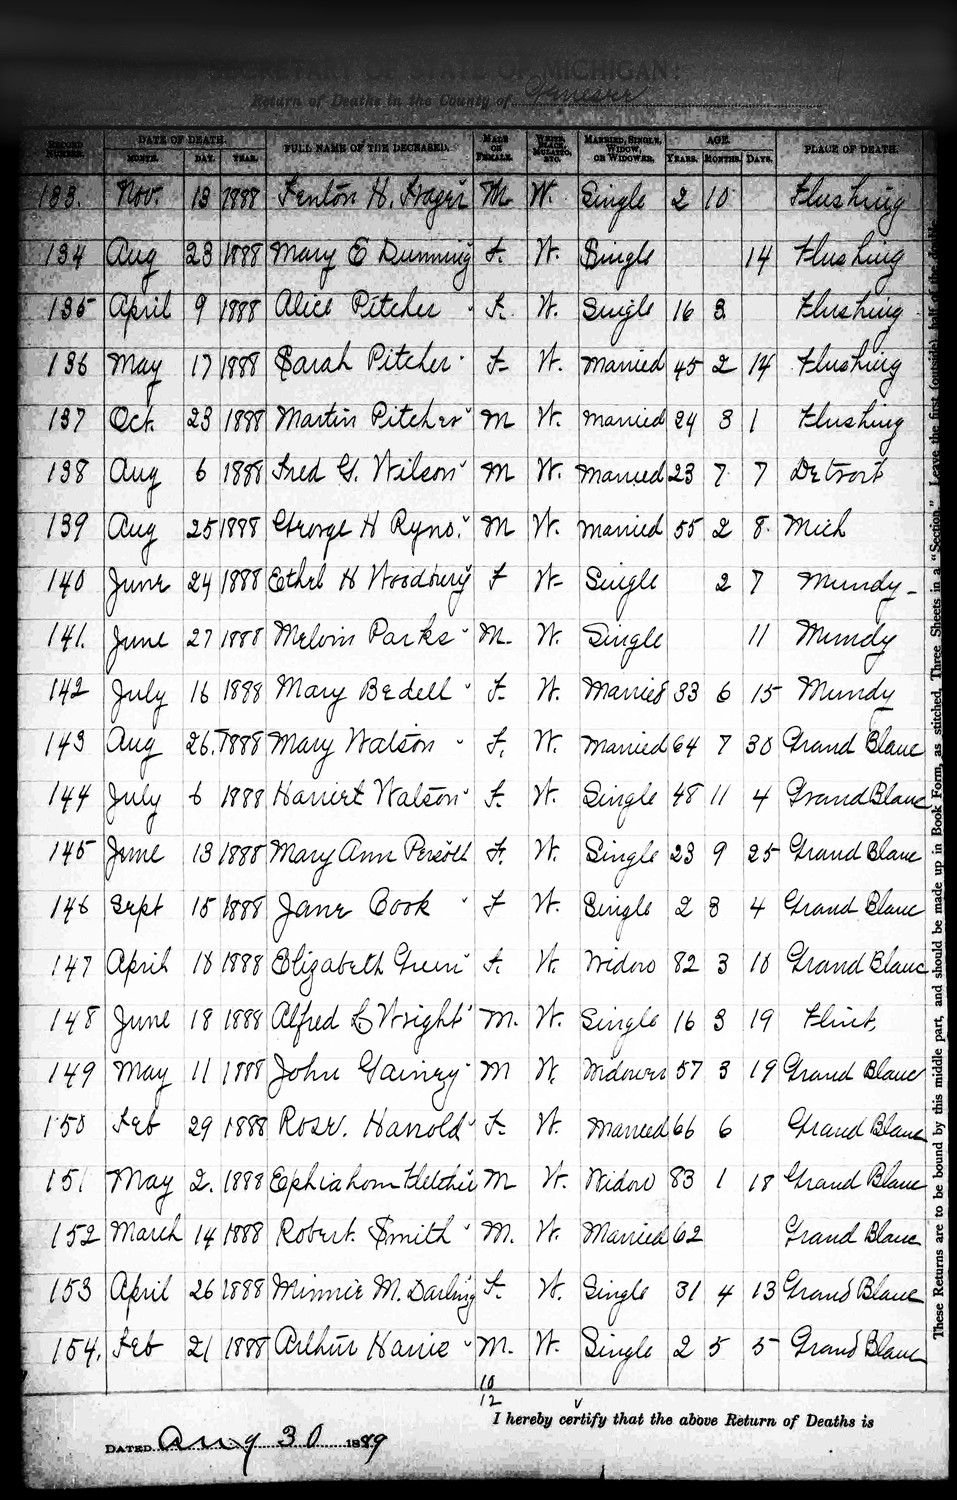 SECRETARY OF STATE OF MICHIGAN:
Return of Deaths in the County of Genesee
RECORD NUMBER. DATE OF DEATH. MONTH. DAY. YEAR. FULL NAME OF THE DECEASED. MALE OR FEMALE. WHITE, BLACK, MULATTO, ETC. MARRIED, SINGLE, WIDOW, OR WIDOWER. AGE. YEARS. MONTHS. DAYS. PLACE OF DEATH.
133. Nov. 13 1888 Fenton H. Hager M W. Single 2 10 Flushing
134 Aug 23 1888 Mary E Dunning F. W. Single 14 Flushing
135 April 9 1888 Alice Pitcher F. W. Single 16 3 Flushing
136 May 17 1888 Sarah Pitcher F W. Married 45 2 14 Flushing
137 Oct. 23 1888 Martin Pitcher M W. Married 24 3 1 Flushing
138 Aug 6 1888 Fred G. Wilson M W. Married 23 7 7 Detroit
139 Aug 25 1888 George H Ryno. M W. Married 55 2 8 Mich
140 June 24 1888 Ethel H Woodbury F W Single 2 7 Mundy
141. June 27 1888 Melvin Parks M. W. Single 11 Mundy
142 July 16 1888 Mary Bedell F. W. Married 33 6 15 Mundy
143 Aug 26. 1888 Mary Watson F. W. Married 64 7 30 Grand Blanc
144 July 6 1888 Harriet Watson F. W. Single 48 11 4 Grand Blanc
145 June 13 1888 Mary Ann F. W. Single 23 9 25 Grand Blanc
146 Sept 15 1888 Jane Cook F W. Single 2 8 4 Grand Blanc
147 April 18 1888 Elizabeth Green F. W. Widow 82 3 10 Grand Blanc
148 June 18 1888 Alfred L Wright M. W. Single 16 3 19 Flint,
149 May 11 1888 John Gainey M W. Widower 57 3 19 Grand Blanc
150 Feb 29 1888 Rose. Harrold F. W. Married 66 6 Grand Blanc
151 May 2. 1888 Fletcher M W. Widow 83 1 18 Grand Blanc
152 March 14 1888 Robert. Smith M. W. Married 62 Grand Blanc
153 April 26 1888 Minnie M. Darling F. W. Single 31 4 13 Grand Blanc
154. Feb 21 1888 Arthur M. W. Single 2 5 5 Grand Blanc
10
12
I hereby certify that the above Return of Deaths is
DATED Aug 30 1889
These Returns are to be bound by this middle part, and should be made up in Book Form, as stitched, Three Sheets in a "Section." Leave the first (outside) half of the